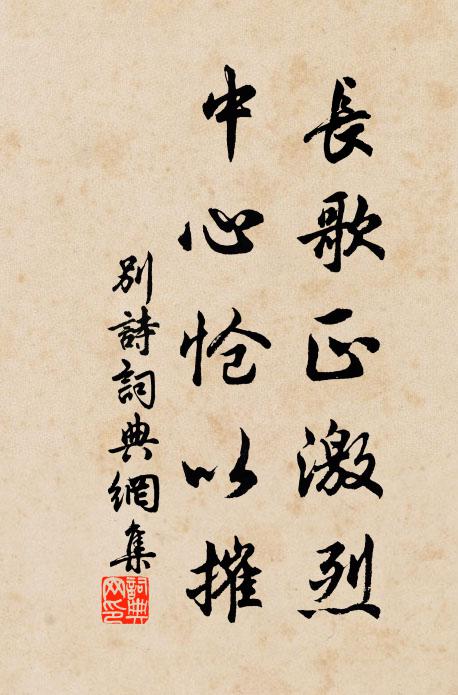 長歌正激烈
中心怆以摧
別詩詞典網集
詞典
网印